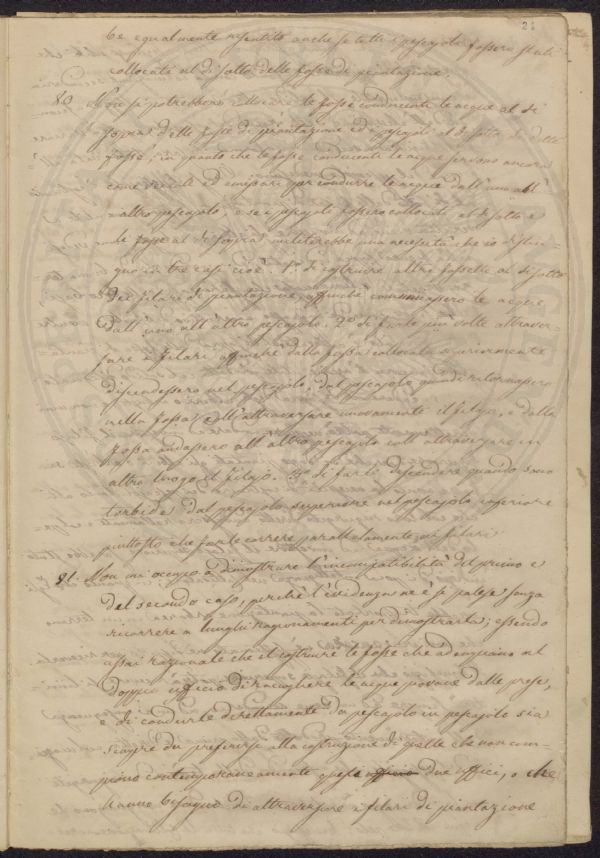 21
be egualmente risentito anche se tutti i pescajoli fossero stati
collocati al di sotto delle fosse di piantazione.
80. Non si potrebbero collocare le fosse conducenti le acque al di
sopra delle fosse di piantazione ed i pescajoli al di sotto di dette
fosse; in quanto che le fosse conducenti le acque servono ancora
come veicoli ed emissari per condurre le acque dall'uno all'
altro pescajolo; e se i pescajoli fossero collocati al di sotto e
le fosse al di sopra militerebbe una necessità che io distin-
guo in tre casi cioè. 1º. di costruire altre fossette al di sotto
dei filari di piantazione, affinché comunicassero le acque
dall'uno all'altro pescajolo. 2º. di farle più volte attraver-
sare i filari affinché dalla fossa collocata superiormente
discendessero nel pescajolo, dal pescajolo quindi ritornassero
nella fossa coll'attraversare nuovamente il filajo, e dalla
fossa andassero all'altro pescajolo coll'attraversare in
altro luogo il filajo. 3º. di farle discendere quando sono
torbide dal pescajolo superiore nel pescajolo inferiore
piuttosto che farle correre parallelamente ai filari
81. Non mi occupo a dimostrare l'incompatibilità del primo e
del secondo caso, perchè l'evidenza ne è si palese senza
ricorrere a lunghi ragionamenti per dimostrarla; essendo
assai razionale che il costruire le fosse che adempiano al
doppio ufficio di raccogliere le acque piovane dalle prese,
e di condurle direttamente da pescajolo in pescajolo sia
sempre da preferirsi alla costruzione di quelle che non com-
piono contemporaneamente questi due uffici, o che
hanno bisogno di attraversare i filari di piantazione